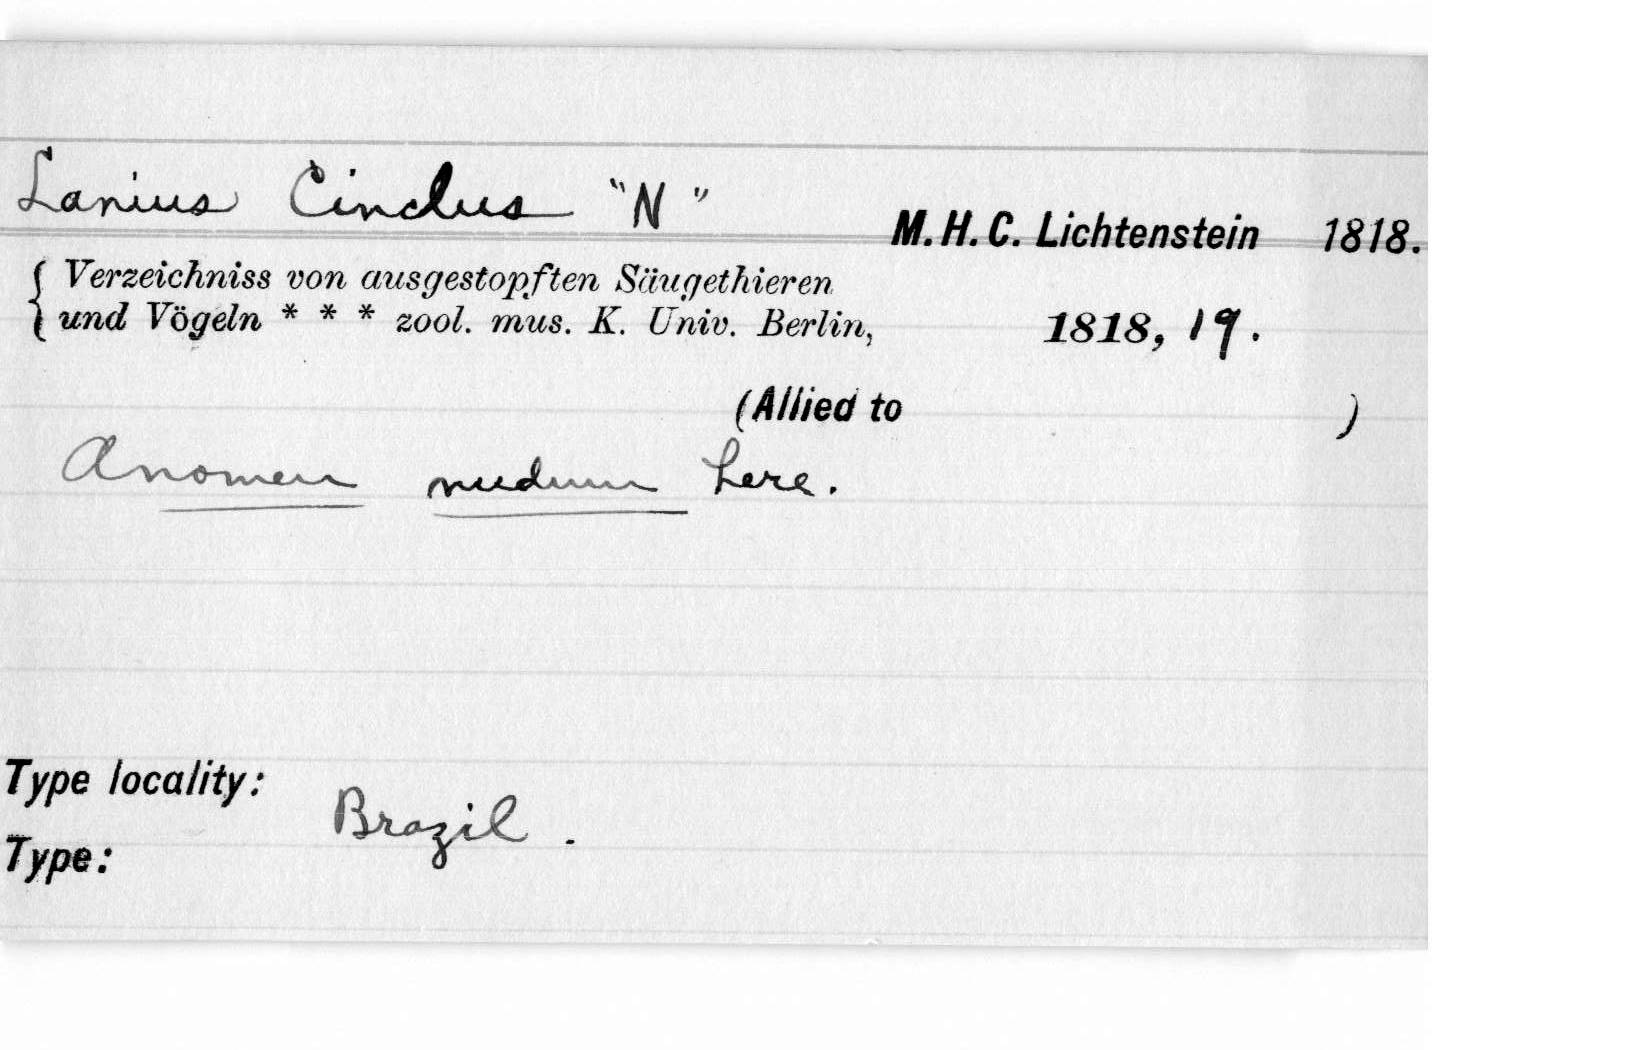 Lanius Cinclus "N"
M. H. C. Lichtenstein 1818.
Verzeichniss von ausgestopften Säugethieren
und Vögeln * * * zool. mus. K. Univ. Berlin, 1818, 19.
(Allied to )
A nomen nudum here.
Type locality:
Brazil.
Type: